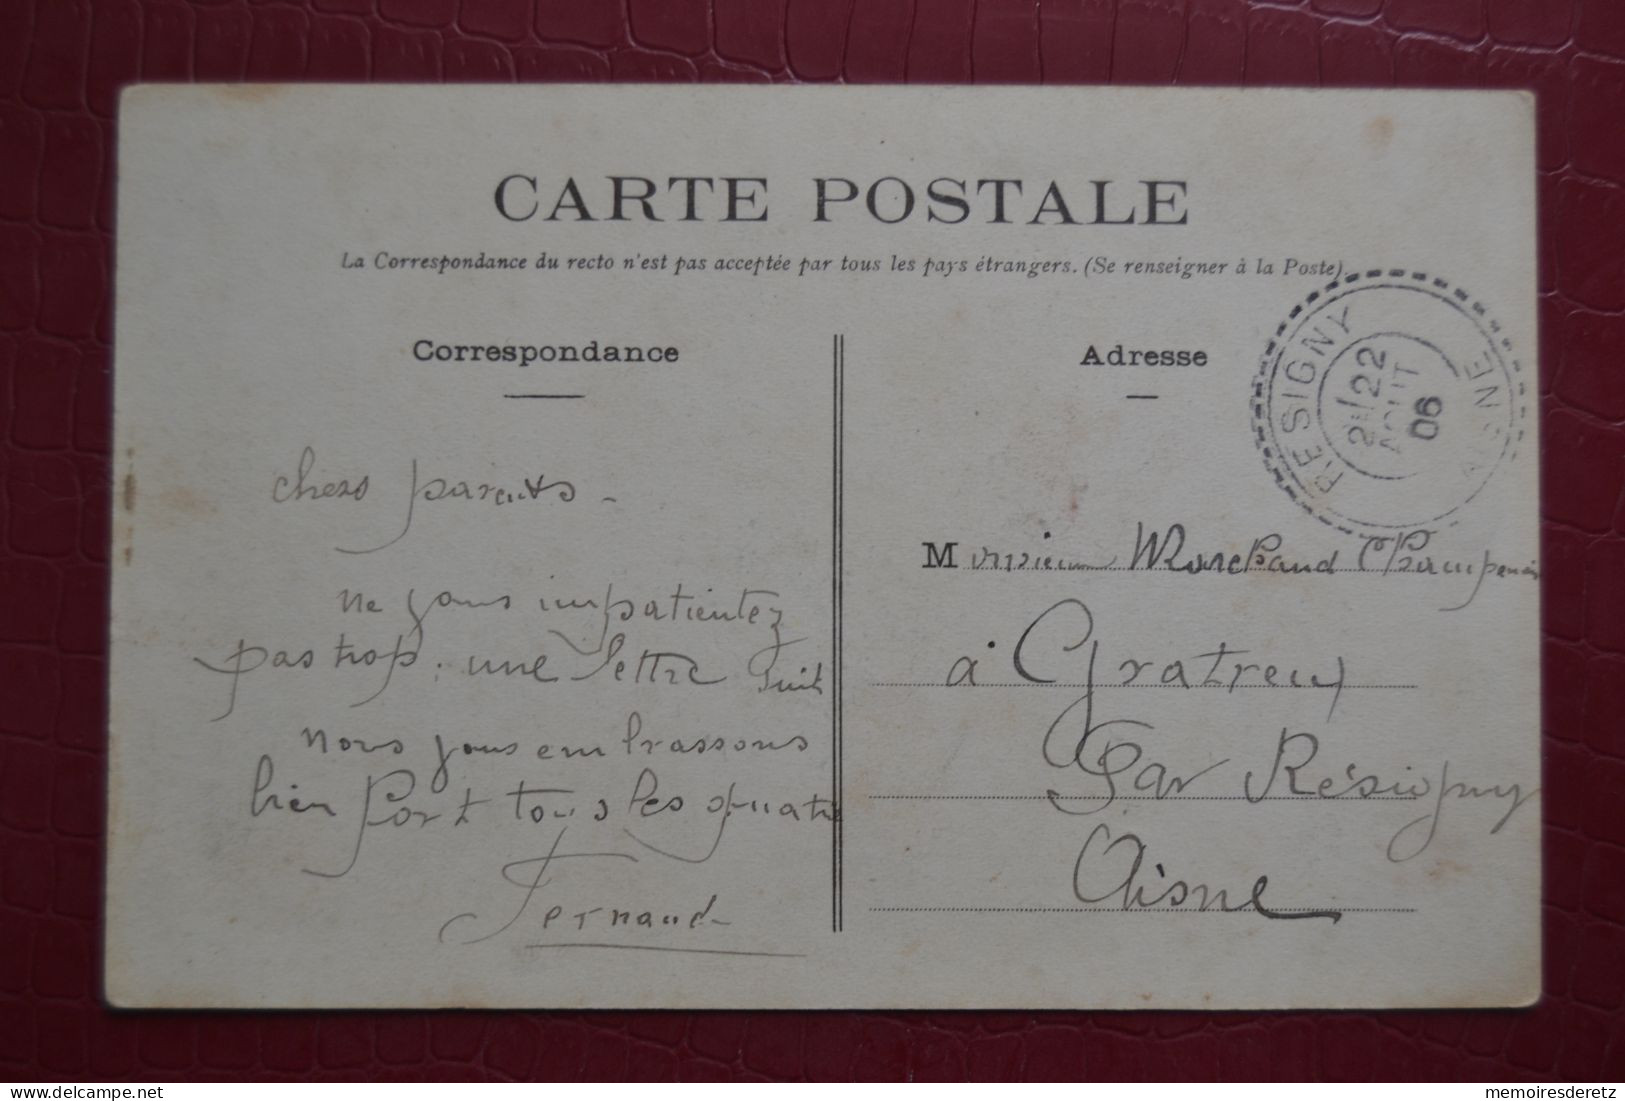 CARTE POSTALE
La Correspondance du recto n'est pas acceptée par tous les pays étrangers. (Se renseigner à la Poste).
Correspondance
chers parents -
ne vous impatientez
pas trop; une lettre suit
nous vous embrassons
bien fort tous les quatre
Fernand
Adresse
RESIGNY
22
AOUT
06
AISNE
Monsieur Marchand Champenois
à Gratreux
Par Résigny
Aisne
memoiresderetz